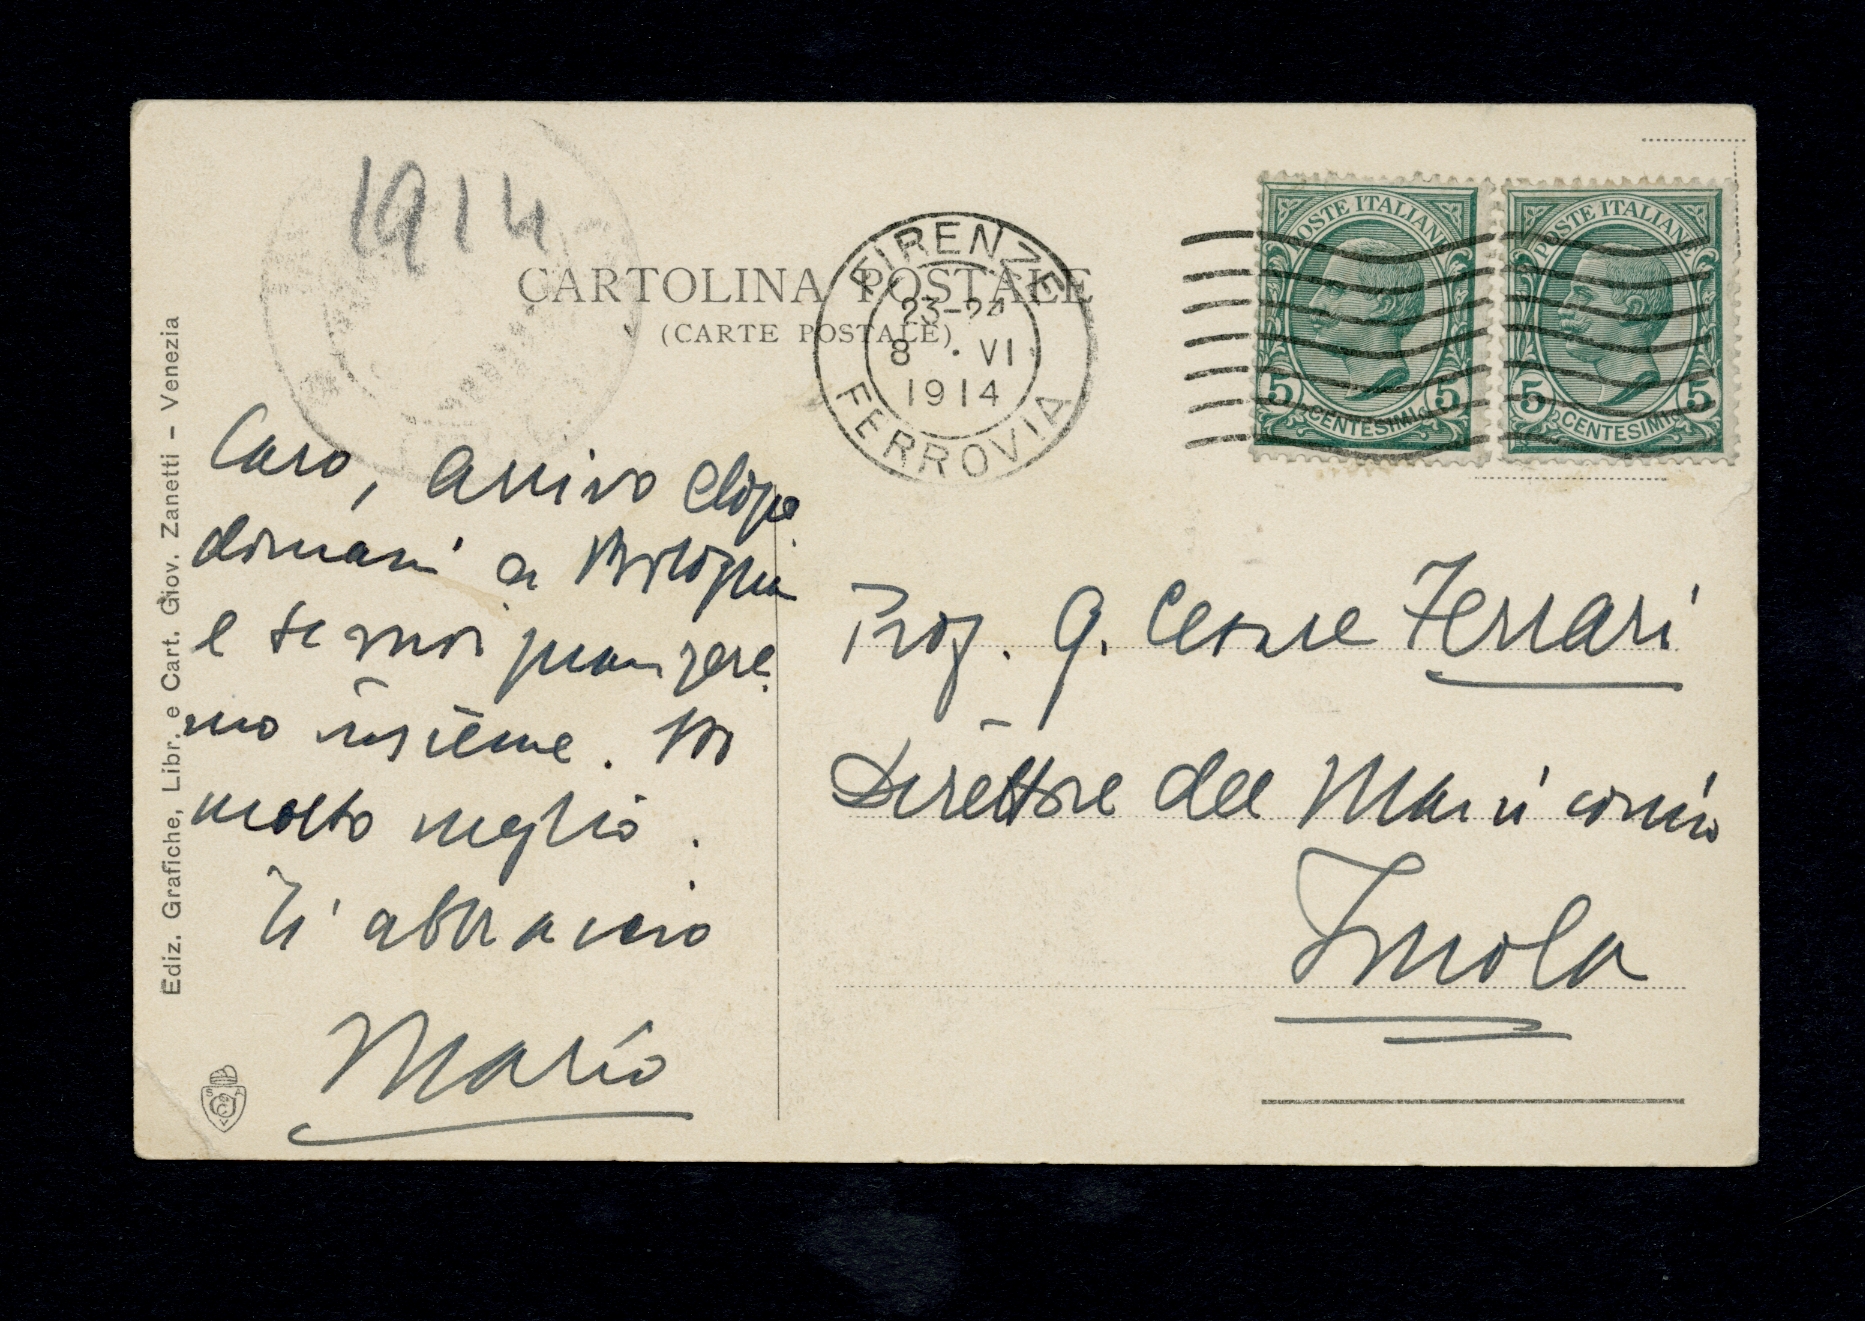 1914
CARTOLINA POSTALE
(CARTE POSTALE)
FIRENZE
23-24
8 · VI
1914
FERROVIA
POSTE ITALIANE
5 CENTESIMI 5
POSTE ITALIANE
5 CENTESIMI 5
Ediz. Grafiche, Libr. e Cart. Giov. Zanetti – Venezia
Caro, arrivo dopo
domani a Bologna
e se vuoi pranzere
mo insieme. Sto
molto meglio.
Ti abbraccio
Mario
Prof. G. Cesare Ferrari
Direttore del Manicomio
Imola